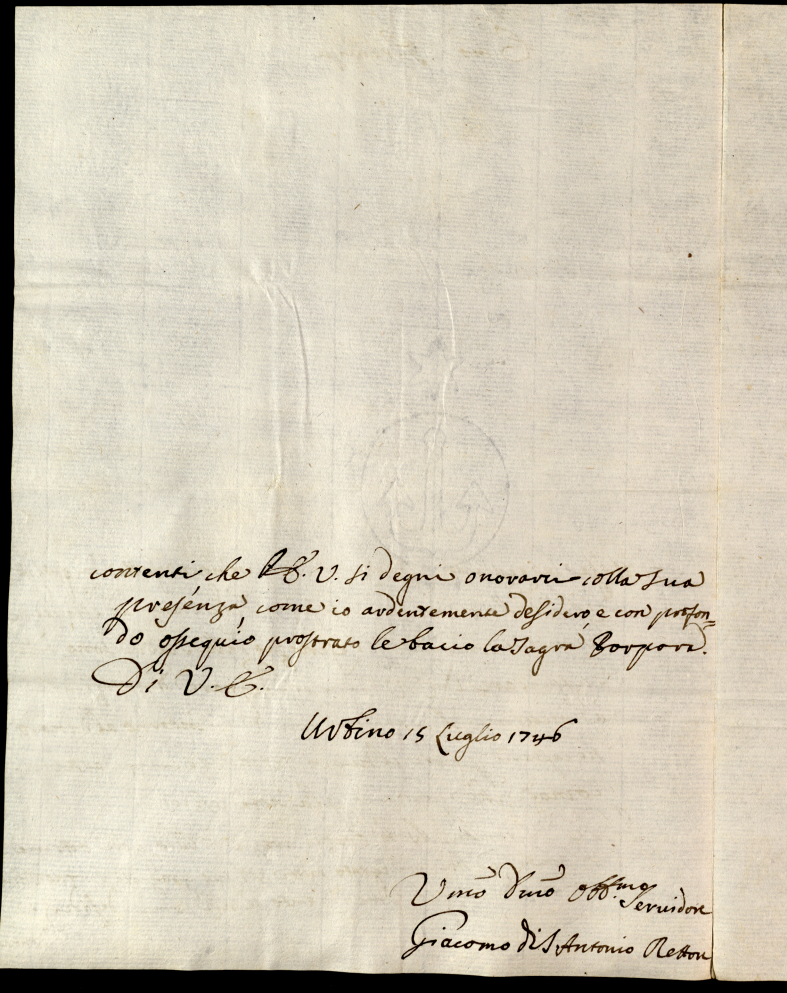 contenti che l'E. V. si degni onorarci colla sua
presenza, come io ardentemente desidero, e con profon=
do ossequio prostrato le bacio la Sagra Porpora.
Di V. E.
Urbino 15 Luglio 1746
Umo Dmo Obbmo Servidore
Giacomo di S. Antonio Rettore